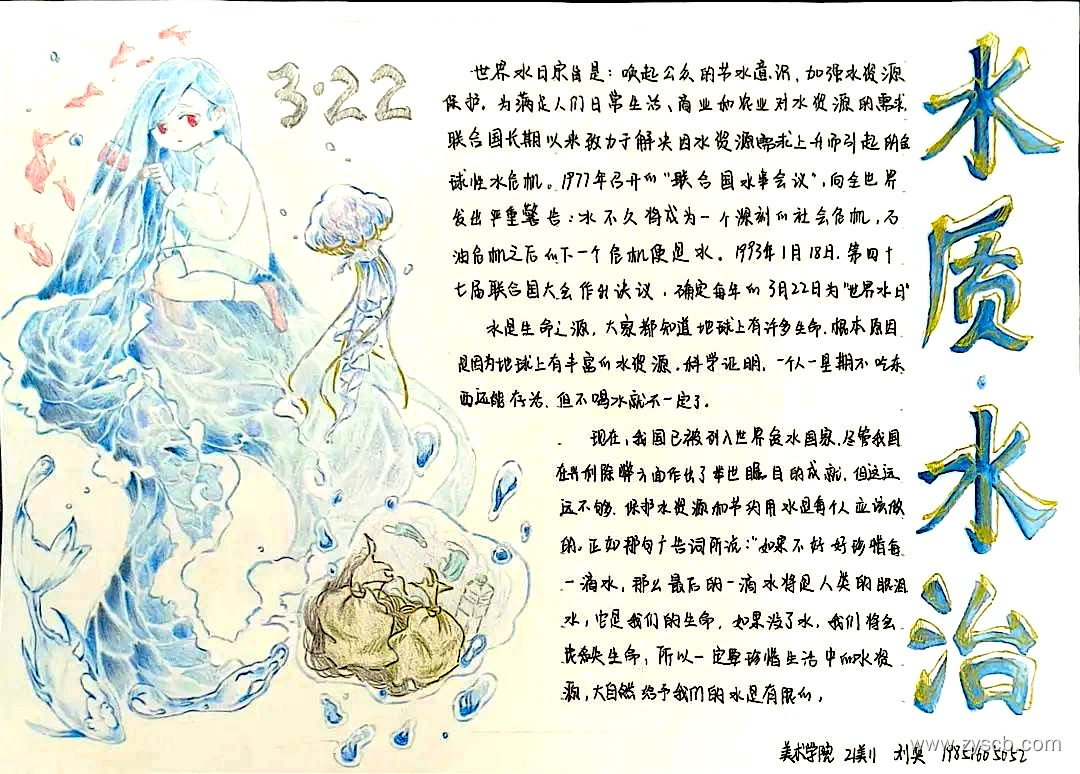 3·22
水质·水治
世界水日宗旨是：唤起公众的节水意识，加强水资源
保护。为满足人们日常生活、商业和农业对水资源的需求
联合国长期以来致力于解决因水资源需求上升而引起的全
球性水危机。1977年召开的"联合国水事会议"，向全世界
发出严重警告：水不久将成为一个深刻的社会危机，石
油危机之后的下一个危机便是水。1993年1月18日，第四十
七届联合国大会作出决议，确定每年的3月22日为"世界水日"
水是生命之源，大家都知道地球上有许多生命，根本原因
是因为地球上有丰富的水资源。科学证明，一个人一星期不吃东
西还能存活，但不喝水就不一定了。
现在，我国已被列入世界贫水国家，尽管我国
在兴利除弊方面作出了举世瞩目的成就，但这还
远不够，保护水资源和节约用水是每个人应该做
的。正如那句广告词所说："如果不好好珍惜每
一滴水，那么最后的一滴水将是人类的眼泪
水，它是我们的生命，如果没了水，我们将会
丧失生命，所以一定要珍惜生活中的水资
源，大自然给予我们的水是有限的。
美术学院 21美1 刘奥 19851605052
www.zyscb.com